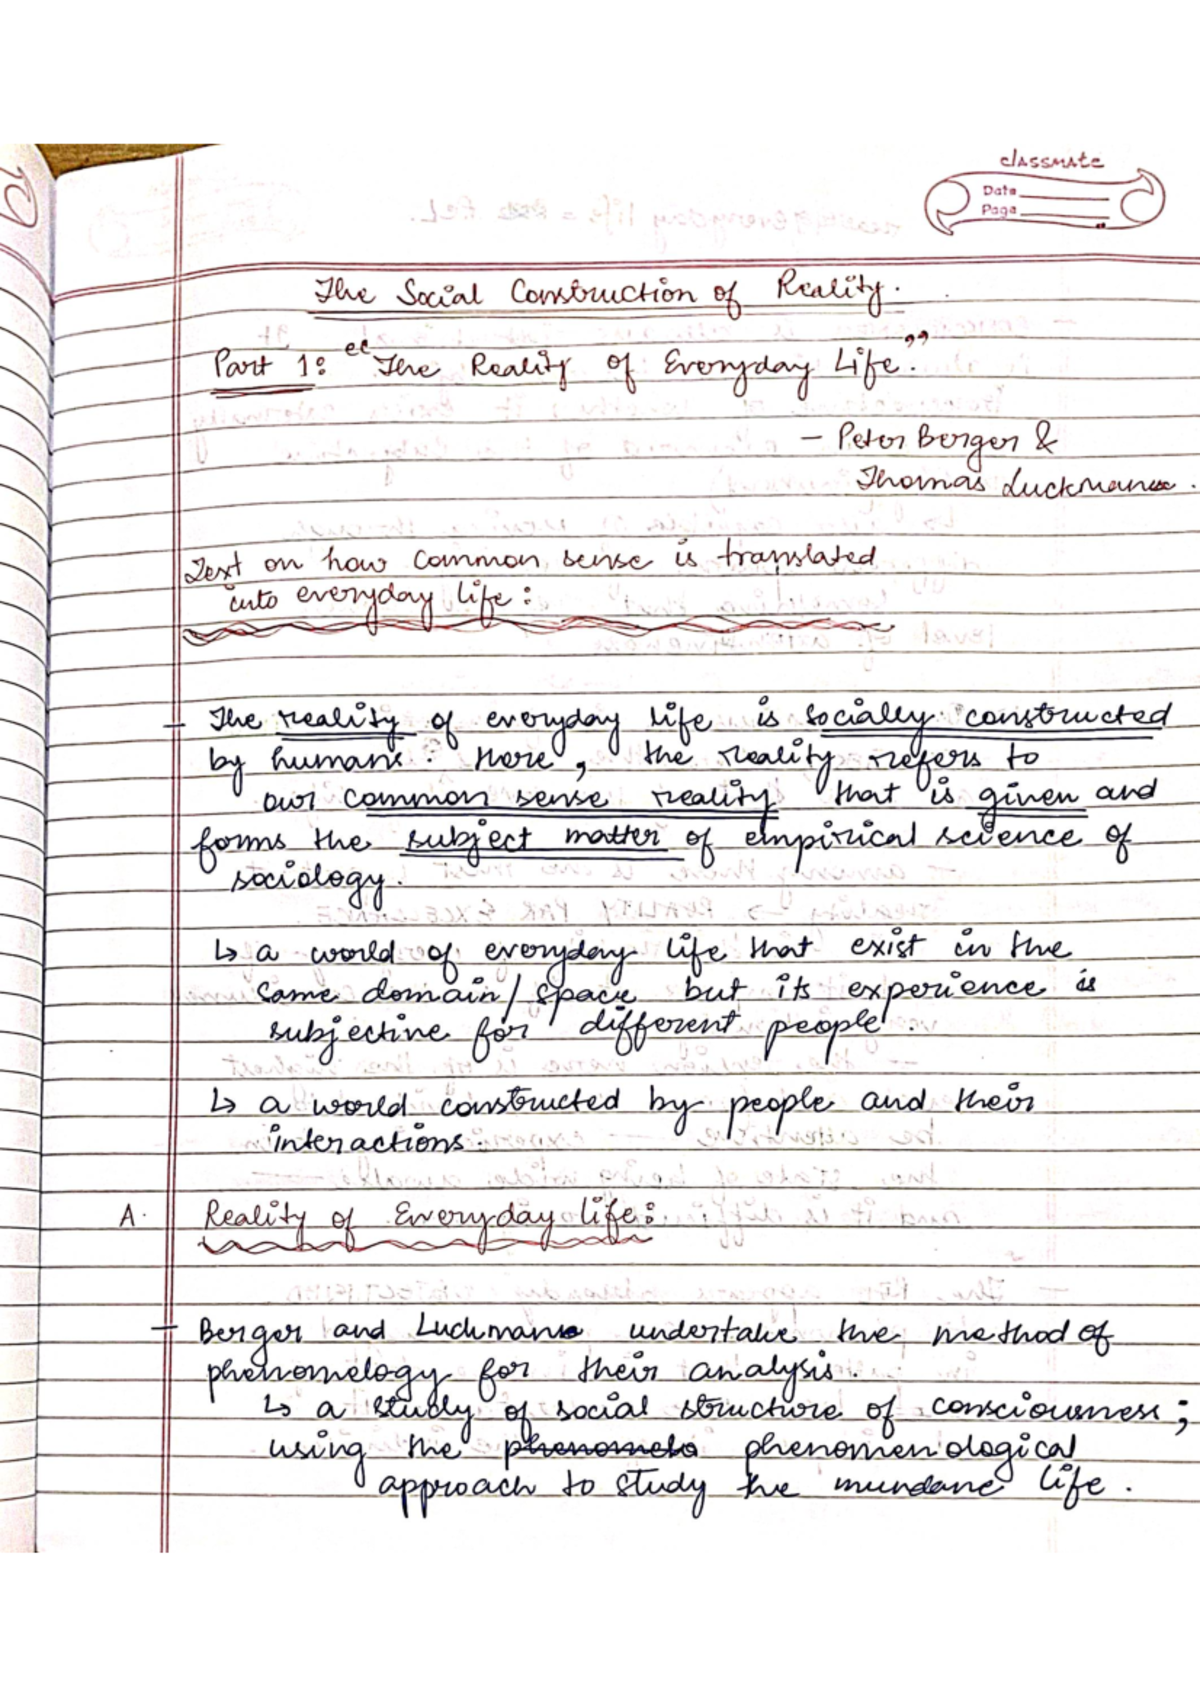 classmate
Date
Page
The Social Construction of Reality.
Part 1: "The Reality of Everyday Life."
- Peter Berger &
Thomas Luckmann.
Text on how common sense is translated
into everyday life:
- The reality of everyday life is socially constructed
by humans. Here, the reality refers to
our common sense reality that is given and
forms the subject matter of empirical science of
sociology.
↳ a world of everyday life that exist in the
same domain/space but its experience is
subjective for different people.
↳ a world constructed by people and their
interactions.
A. Reality of Everyday life:
- Berger and Luckmann undertake the method of
phenomelogy for their analysis.
↳ a study of social structure of consciousness;
using the phenomelo phenomenological
approach to study the mundane life.